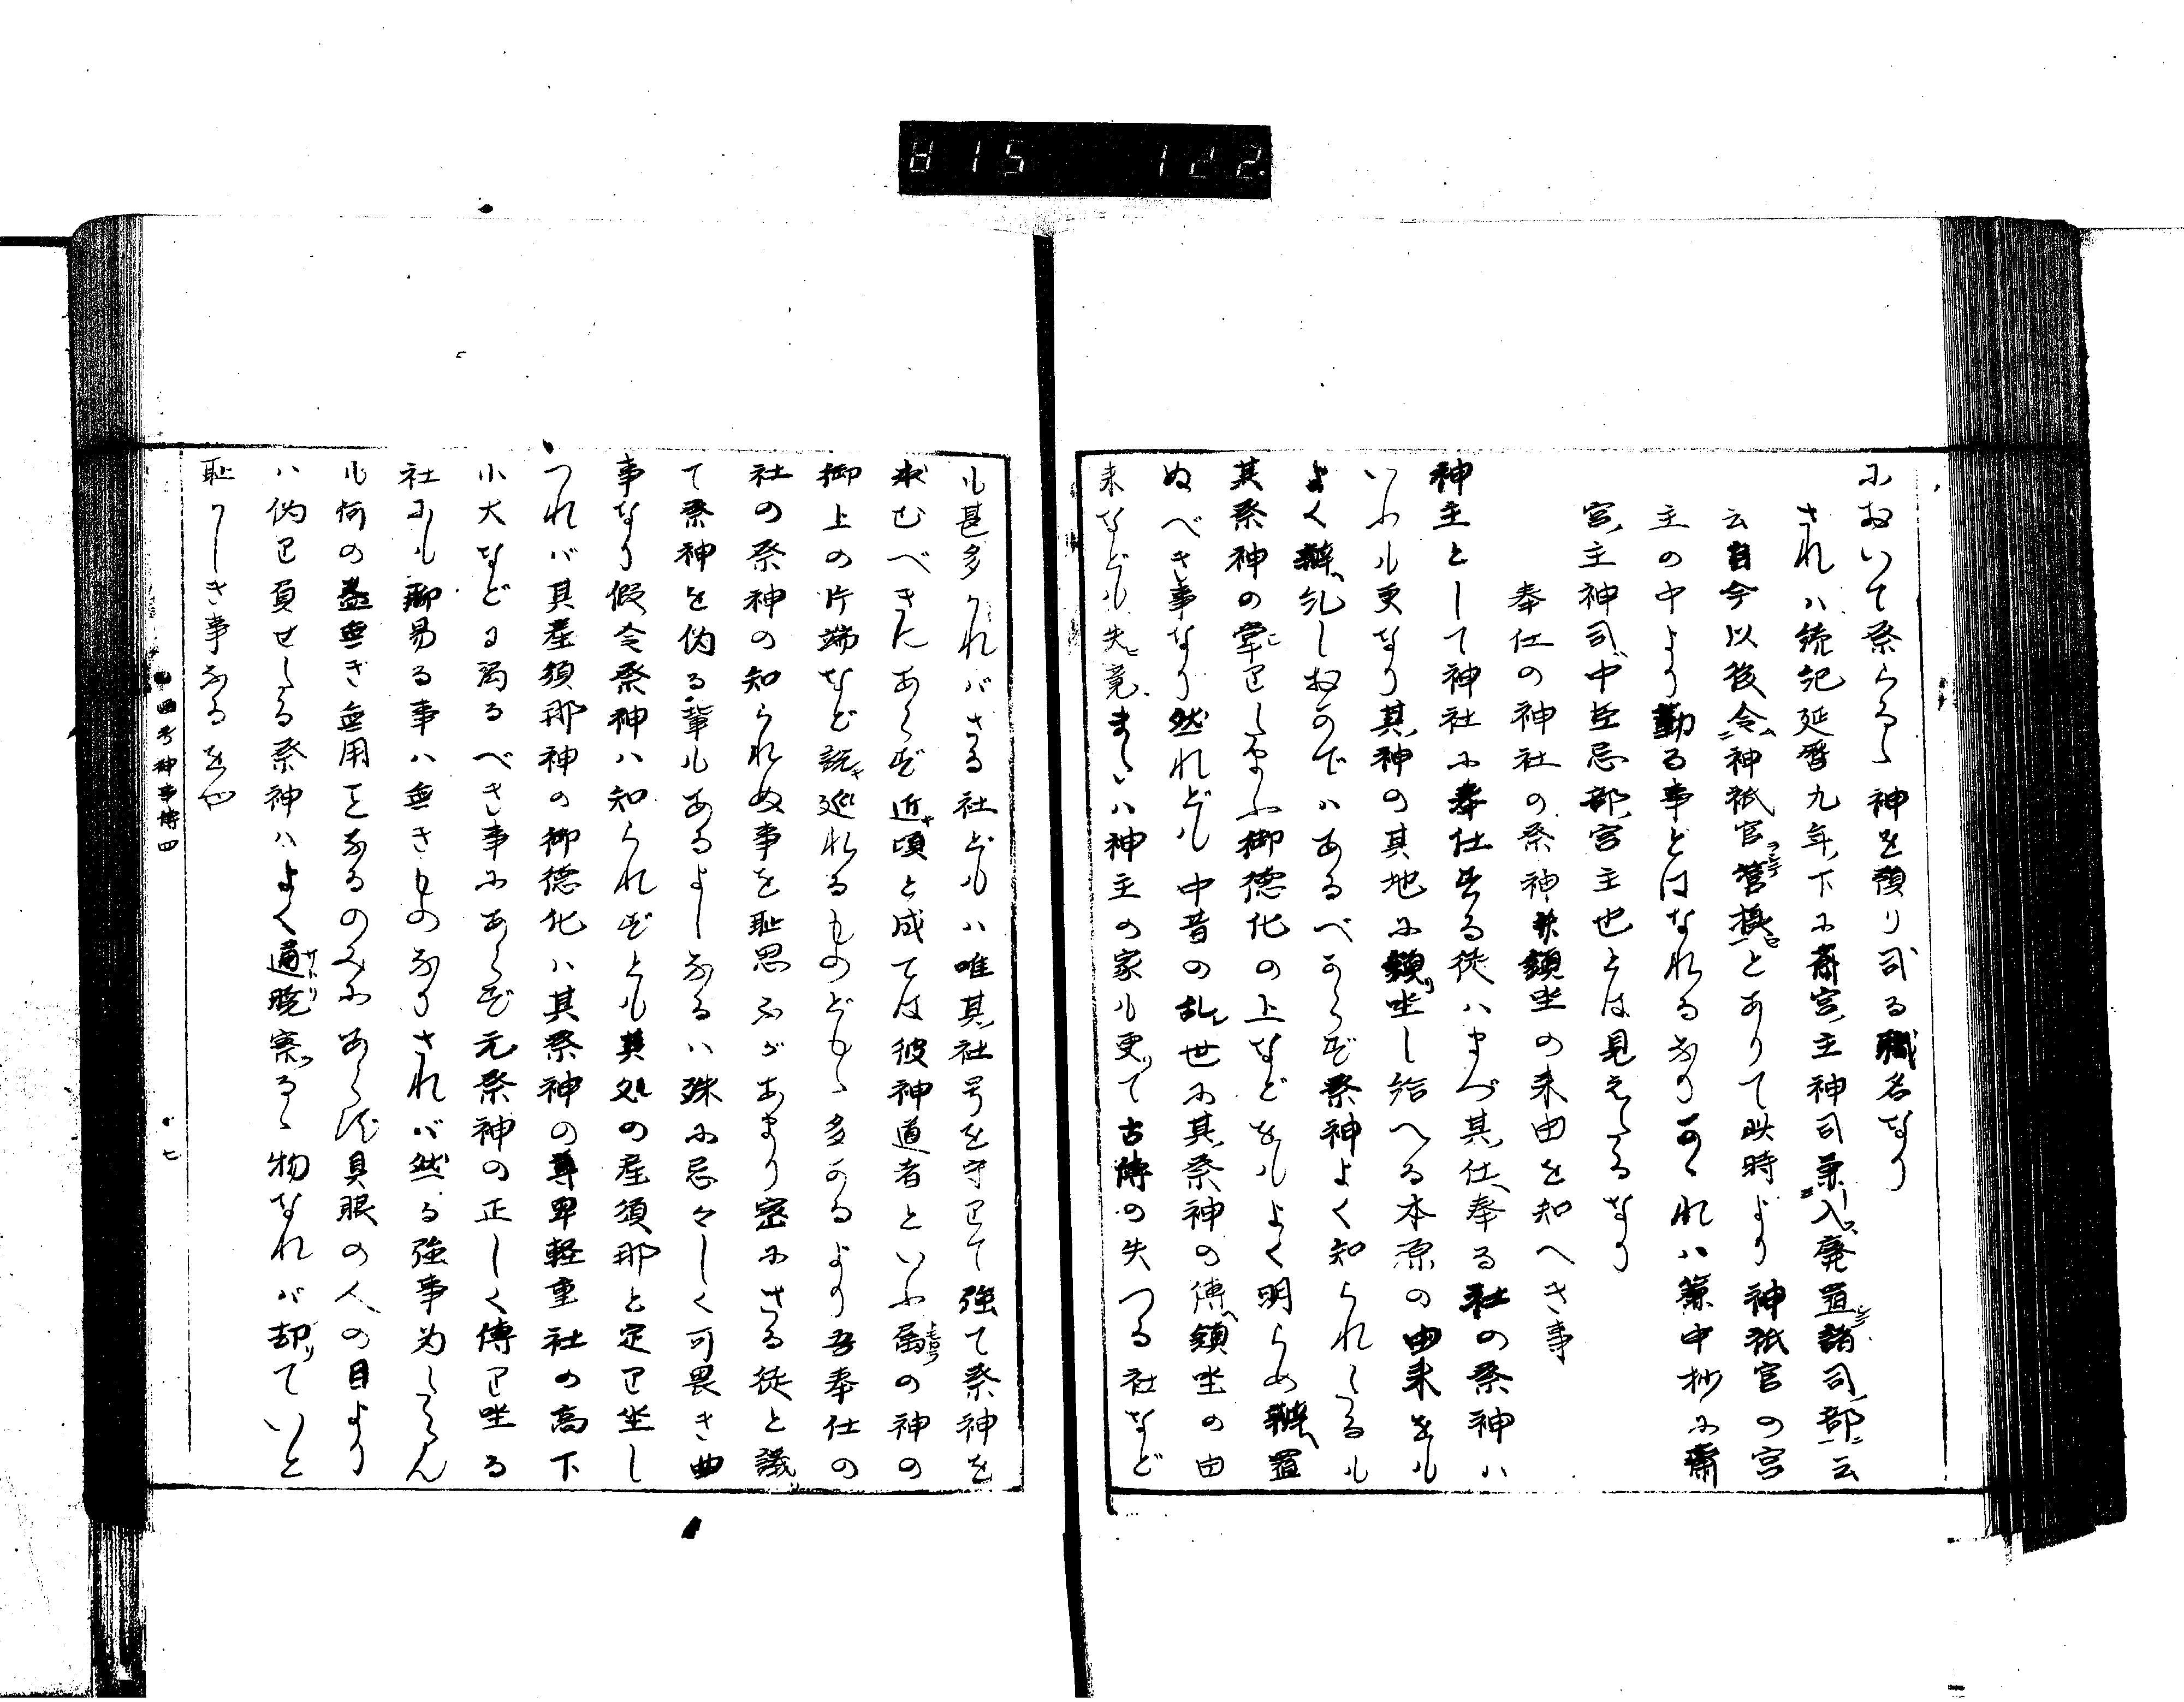 815 122.
におゐて祭らるゝ神を預り司る職名なり
されハ続紀延暦九年下に斎宮主神司兼入廃置諸司部云
云自今以後令神祇官管摂とありて此時より神祇官の宮
主の中より勤る事とはなれるなりかゝれハ簾中抄に斎
宮主神司中臣忌部宮主也とは見えたるなり
奉仕の神社の祭神并鎮坐の来由を知へき事
神主として神社に奉仕する徒ハまづ其仕奉る社の祭神ハ
いふも更なり其神の其地に鎮坐し給へる本源の由来をも
よく辨へ糺しおかでハあるべからず祭神よく知られたるも
其祭神の掌したまふ御徳化の上などをもよく明らめ辨へ置
ぬべき事なり然れども中昔の乱世に其祭神の傳へ鎮坐の由
来なども失ひ竟まゝハ神主の家も更りて古傳の失つる社など
も甚多かれバさる社どもハ唯其社号を守りて強て祭神を
求むべきにあらず近き頃と成ては彼神道者といふ属の神の
御上の片端など説き巡れるものどもゝ多かるより吾奉仕の
社の祭神の知られぬ事を恥思ふがあまり密にさる徒と議り
て祭神を偽る輩もあるよしなるハ殊に忌々しく可畏き曲
事なり假令祭神ハ知られずとも其処の産須那と定り坐し
つれバ其産須那神の御徳化ハ其祭神の尊卑軽重社の高下
小大などに寄るべき事にあらず元祭神の正しく傳り坐る
社にも聊易る事ハ無きものなりされバ然る強事為たらん
も何の益無き無用ことなるのみにあらず具眼の人の目より
ハ偽り負せたる祭神ハよく通暁察るゝ物なれバ却りていと
恥かしき事なるをや
四考神事傳四
七